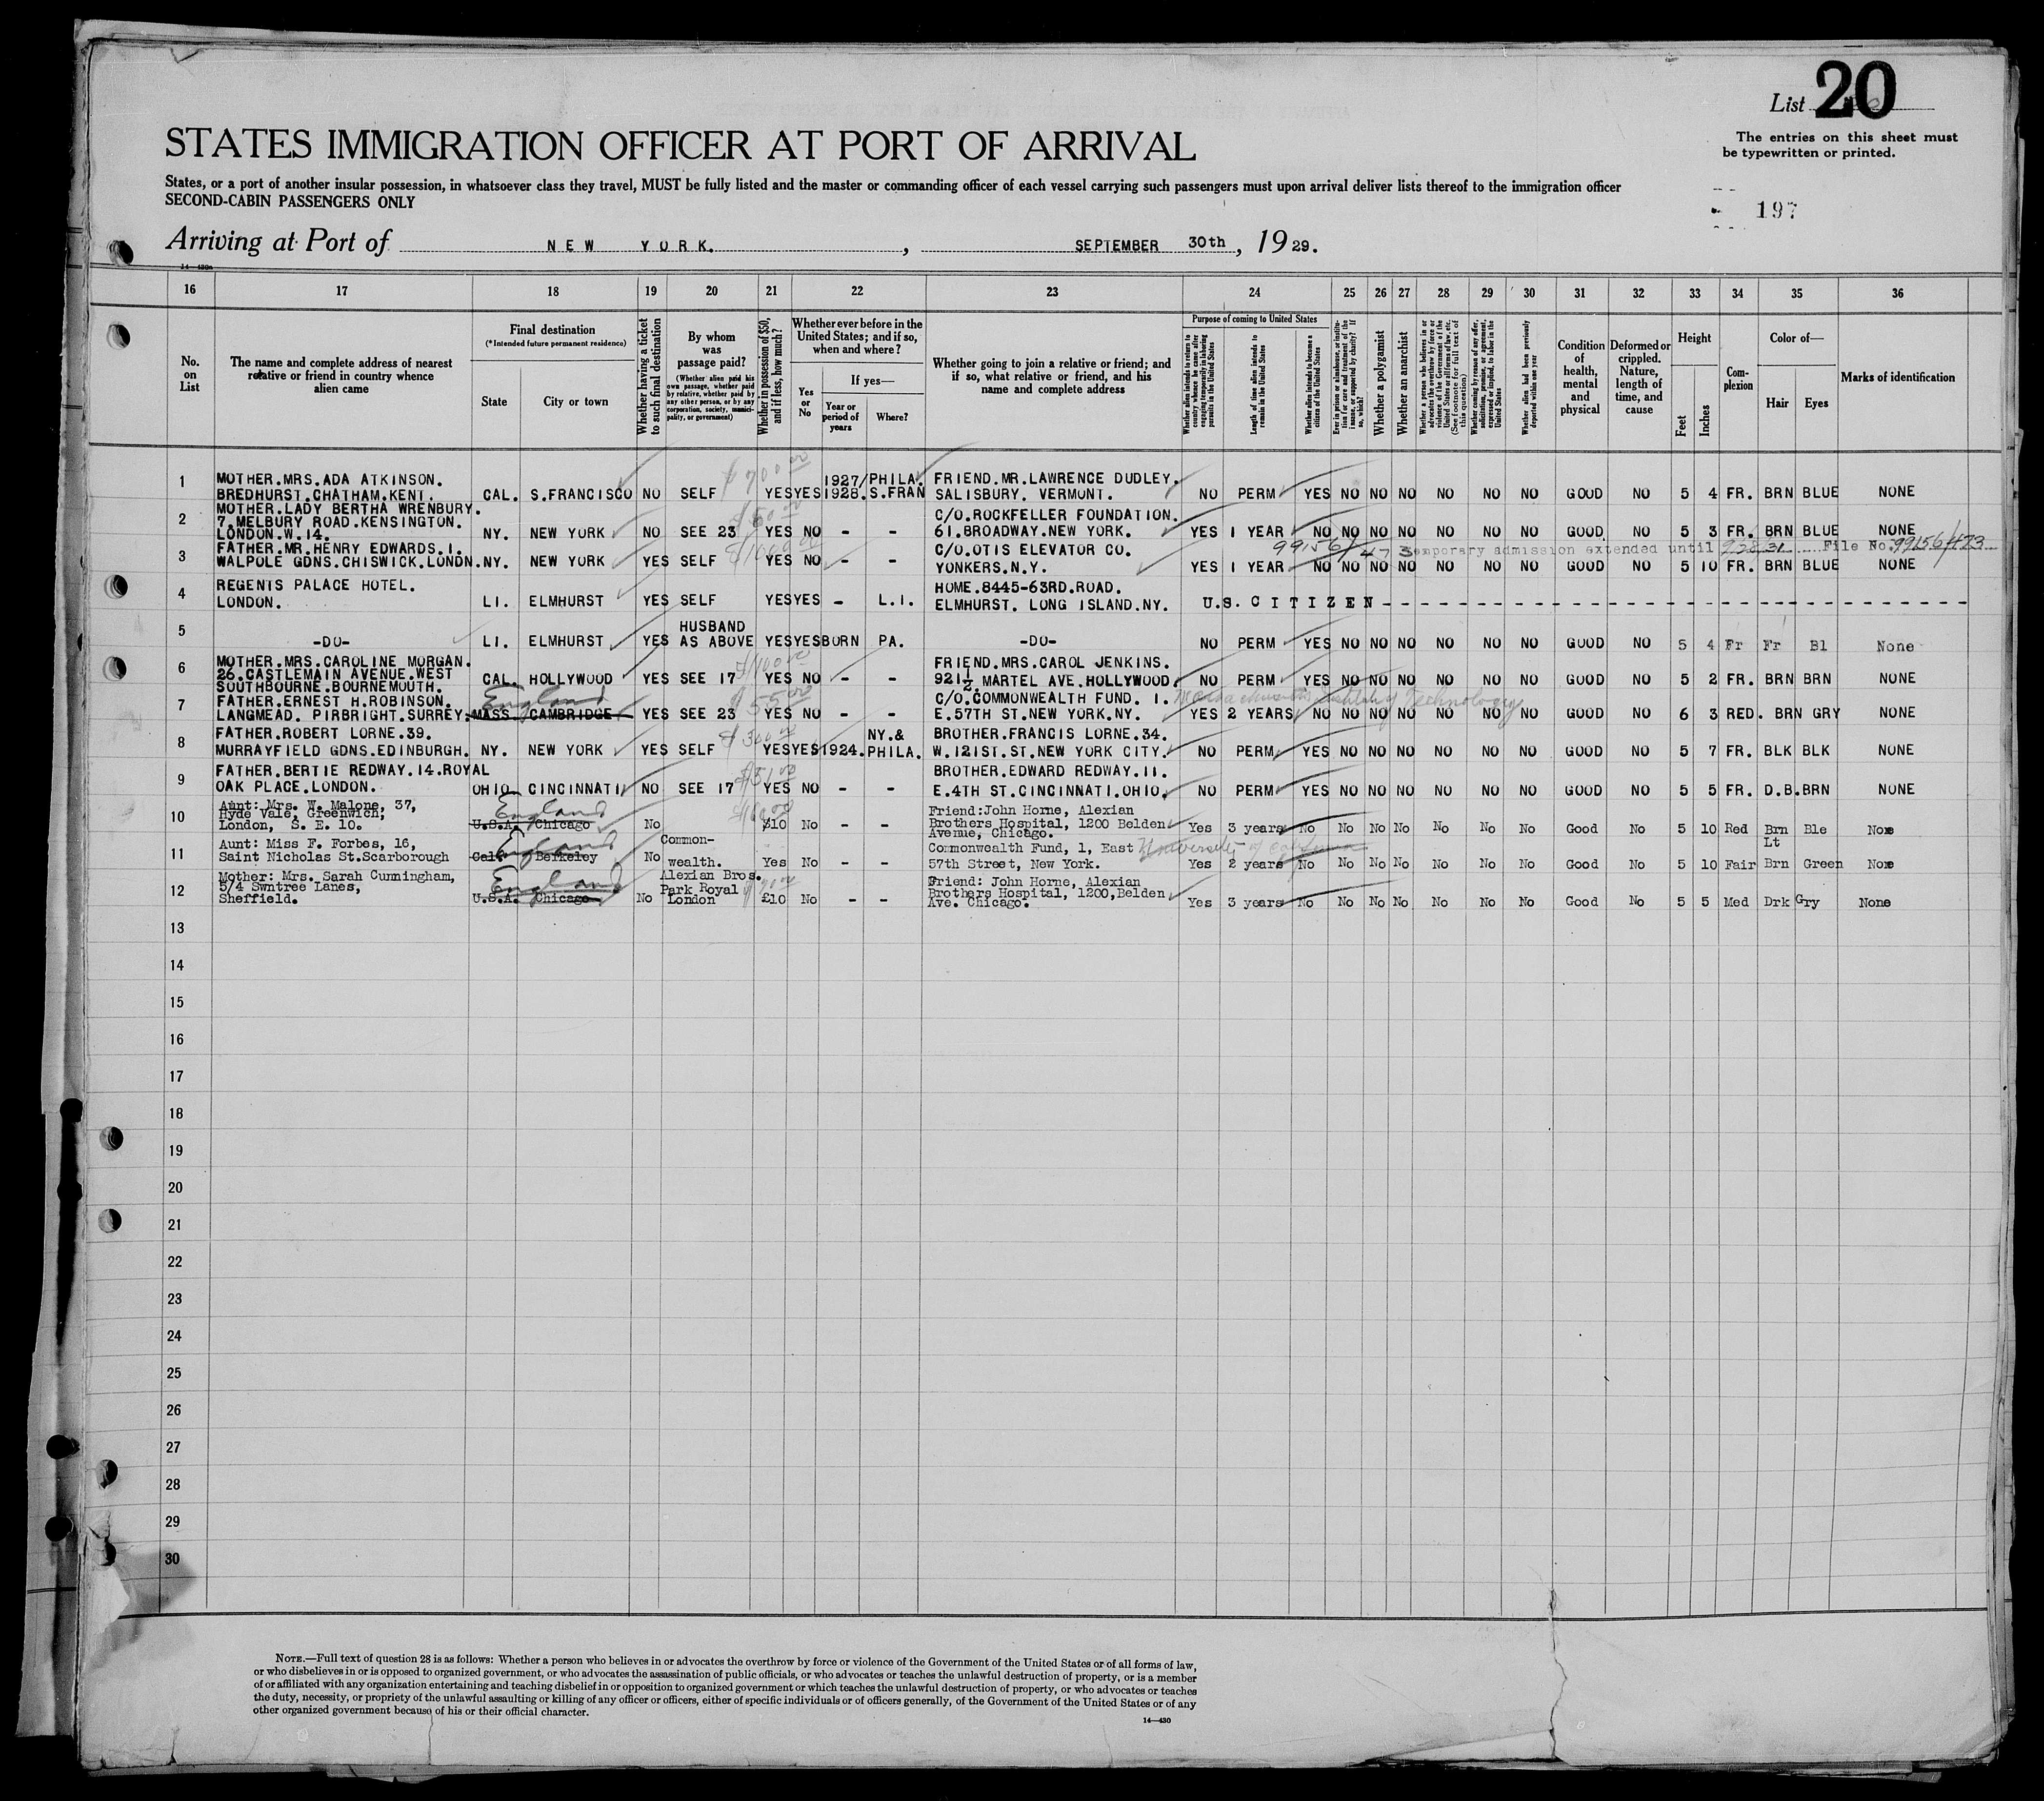 List 20
The entries on this sheet must
be typewritten or printed.
STATES IMMIGRATION OFFICER AT PORT OF ARRIVAL
States, or a port of another insular possession, in whatsoever class they travel, MUST be fully listed and the master or commanding officer of each vessel carrying such passengers must upon arrival deliver lists thereof to the immigration officer
SECOND-CABIN PASSENGERS ONLY
197
Arriving at Port of NEW YORK. , SEPTEMBER 30th, 1929.
14—430a
16 17 18 19 20 21 22 23 24 25 26 27 28 29 30 31 32 33 34 35 36
No. on List
The name and complete address of nearest relative or friend in country whence alien came
Final destination
(*Intended future permanent residence)
State City or town
Whether having a ticket to such final destination
By whom was passage paid?
(Whether alien paid his own passage, whether paid by relative, whether paid by any other person, or by any corporation, society, municipality, or government)
Whether in possession of $50, and if less, how much?
Whether ever before in the United States; and if so, when and where?
Yes or No
If yes—
Year or period of years
Where?
Whether going to join a relative or friend; and if so, what relative or friend, and his name and complete address
Purpose of coming to United States
Whether alien intends to return to country whence he came after engaging temporarily in laboring pursuits in the United States
Length of time alien intends to remain in the United States
Whether alien intends to become a citizen of the United States
Ever in prison or almshouse, or institution for care and treatment of the insane, or supported by charity? If so, which?
Whether a polygamist
Whether an anarchist
Whether a person who believes in or advocates the overthrow by force or violence of the Government of the United States or all forms of law, etc. (See footnote for full text of this question.)
Whether coming by reason of any offer, solicitation, promise, or agreement, expressed or implied, to labor in the United States
Whether alien had been previously deported within one year
Condition of health, mental and physical
Deformed or crippled. Nature, length of time, and cause
Height
Feet Inches
Complexion
Color of—
Hair Eyes
Marks of identification
$700.00
1 MOTHER.MRS.ADA ATKINSON. 1927/ PHILA. FRIEND.MR.LAWRENCE DUDLEY.
BREDHURST.CHATHAM.KENT. CAL. S.FRANCISCO NO SELF YES YES 1928. S.FRAN SALISBURY. VERMONT. NO PERM YES NO NO NO NO NO NO GOOD NO 5 4 FR. BRN BLUE NONE
2 MOTHER.LADY BERTHA WRENBURY. $50.00 C/O.ROCKFELLER FOUNDATION.
7.MELBURY ROAD.KENSINGTON.
LONDON.W.14. NY. NEW YORK NO SEE 23 YES NO - - 61.BROADWAY.NEW YORK. YES 1 YEAR NO NO NO NO NO NO NO GOOD NO 5 3 FR. BRN BLUE NONE
3 FATHER.MR.HENRY EDWARDS.1. $1000.00 C/O.OTIS ELEVATOR CO. 99156/473 Temporary admission extended until 9 30 31 File No. 99156/473
WALPOLE GDNS.CHISWICK.LONDN. NY. NEW YORK YES SELF YES NO - - YONKERS.N.Y. YES 1 YEAR NO NO NO NO NO NO NO GOOD NO 5 10 FR. BRN BLUE NONE
4 REGENTS PALACE HOTEL. HOME.8445-63RD.ROAD.
LONDON. LI. ELMHURST YES SELF YES YES - L.I. ELMHURST. LONG ISLAND.NY. U.S. CITIZEN
5 HUSBAND
-DO- LI. ELMHURST YES AS ABOVE YES YES BORN PA. -DO- NO PERM YES NO NO NO NO NO NO GOOD NO 5 4 Fr Fr Bl None
6 MOTHER.MRS.CAROLINE MORGAN. $100.00 FRIEND.MRS.CAROL JENKINS.
26.CASTLEMAIN AVENUE.WEST
SOUTHBOURNE.BOURNEMOUTH. CAL. HOLLYWOOD YES SEE 17 YES NO - - 921½.MARTEL AVE.HOLLYWOOD. NO PERM YES NO NO NO NO NO NO GOOD NO 5 2 FR. BRN BRN NONE
7 FATHER.ERNEST H.ROBINSON. England $55.00 C/O.COMMONWEALTH FUND. 1. Massachusetts Institute of Technology
LANGMEAD. PIRBRIGHT.SURREY. MASS. CAMBRIDGE YES SEE 23 YES NO - - E.57TH ST.NEW YORK.NY. YES 2 YEARS NO NO NO NO NO NO NO GOOD NO 6 3 RED. BRN GRY NONE
8 FATHER.ROBERT LORNE.39. $300.00 NY.& BROTHER.FRANCIS LORNE.34.
MURRAYFIELD GDNS.EDINBURGH. NY. NEW YORK YES SELF YES YES 1924. PHILA. W.121ST.ST.NEW YORK CITY. NO PERM YES NO NO NO NO NO NO GOOD NO 5 7 FR. BLK BLK NONE
9 FATHER.BERTIE REDWAY.14.ROYAL $51.00 BROTHER.EDWARD REDWAY.11.
OAK PLACE.LONDON. OHIO CINCINNATI NO SEE 17 YES NO - - E.4TH ST.CINCINNATI.OHIO. NO PERM YES NO NO NO NO NO NO GOOD NO 5 5 FR. D.B. BRN NONE
10 Aunt: Mrs. W. Malone, 37, England Friend:John Horne, Alexian
Hyde Vale, Greenwich, Brothers Hospital, 1200 Belden
London, S. E. 10. U.S.A. Chicago No $10 No - - Avenue, Chicago. Yes 3 years No No No No No No No Good No 5 10 Red Brn Ble None
11 Aunt: Miss F. Forbes, 16, England Common- Commonwealth Fund, 1, East University of California Lt
Saint Nicholas St.Scarborough Cal. Berkeley No wealth. Yes No - - 57th Street, New York. Yes 2 years No No No No No No No Good No 5 10 Fair Brn Green None
12 Mother: Mrs. Sarah Cunningham, England Alexian Bros. Friend: John Horne, Alexian
5/4 Swntree Lanes, Park Royal Brothers Hospital, 1200,Belden
Sheffield. U.S.A. Chicago No London £10 No - - Ave. Chicago. Yes 3 years No No No No No No No Good No 5 5 Med Drk Gry None
13
14
15
16
17
18
19
20
21
22
23
24
25
26
27
28
29
30
NOTE.—Full text of question 28 is as follows: Whether a person who believes in or advocates the overthrow by force or violence of the Government of the United States or of all forms of law,
or who disbelieves in or is opposed to organized government, or who advocates the assassination of public officials, or who advocates or teaches the unlawful destruction of property, or is a member
of or affiliated with any organization entertaining and teaching disbelief in or opposition to organized government or which teaches the unlawful destruction of property, or who advocates or teaches
the duty, necessity, or propriety of the unlawful assaulting or killing of any officer or officers, either of specific individuals or of officers generally, of the Government of the United States or of any
other organized government because of his or their official character.
14—430